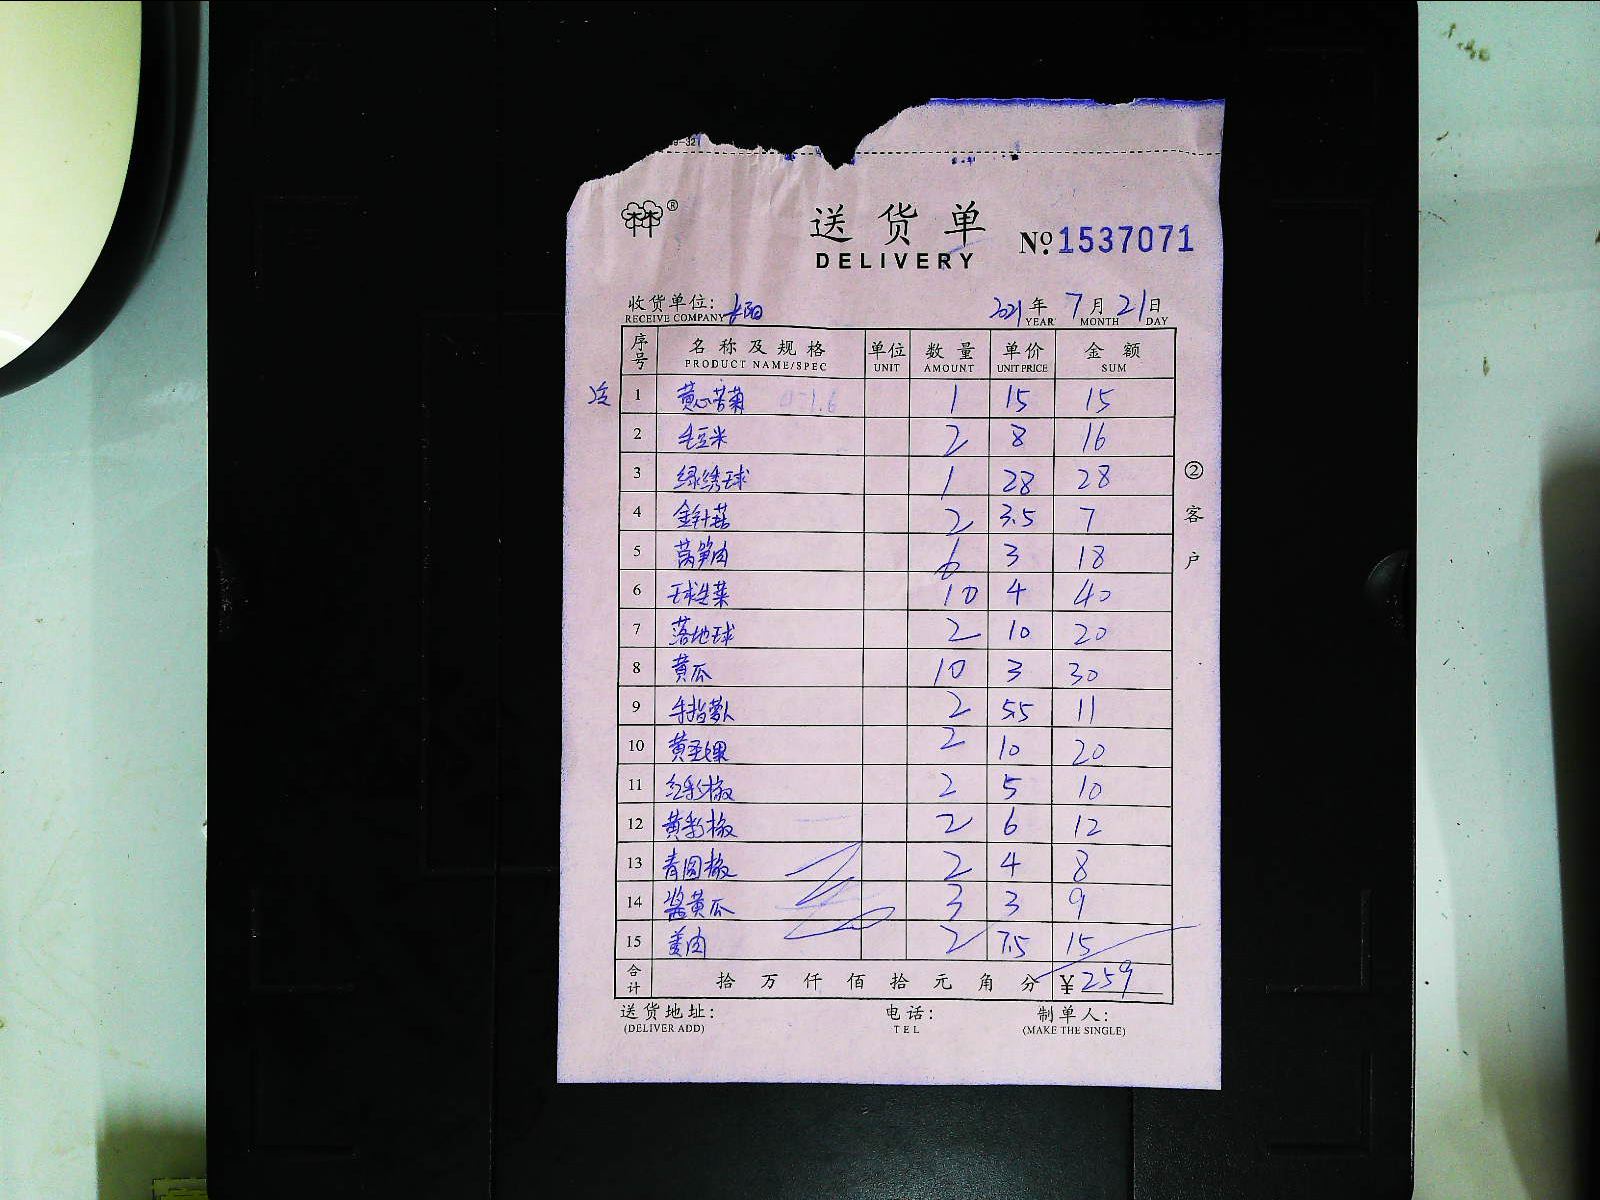 送货单
DELIVERY
№ 1537071
收货单位: 长阳 2021年 7月 21日
RECEIVE COMPANY YEAR MONTH DAY
序号 名称及规格 单位 数量 单价 金额
PRODUCT NAME/SPEC UNIT AMOUNT UNIT PRICE SUM
1 黄心苦菊 1 15 15
2 毛豆米 2 8 16
3 绿绣球 1 28 28
4 金针菇 2 3.5 7
5 莴笋肉 6 3 18
6 球生菜 10 4 40
7 落地球 2 10 20
8 黄瓜 10 3 30
9 手指萝卜 2 5.5 11
10 黄圣女果 2 10 20
11 红彩椒 2 5 10
12 黄彩椒 2 6 12
13 青圆椒 2 4 8
14 酱黄瓜 3 3 9
15 姜肉 2 7.5 15
合计 拾 万 仟 佰 拾 元 角 分 ¥259
②客户
送货地址: 电话: 制单人:
(DELIVER ADD) TEL (MAKE THE SINGLE)